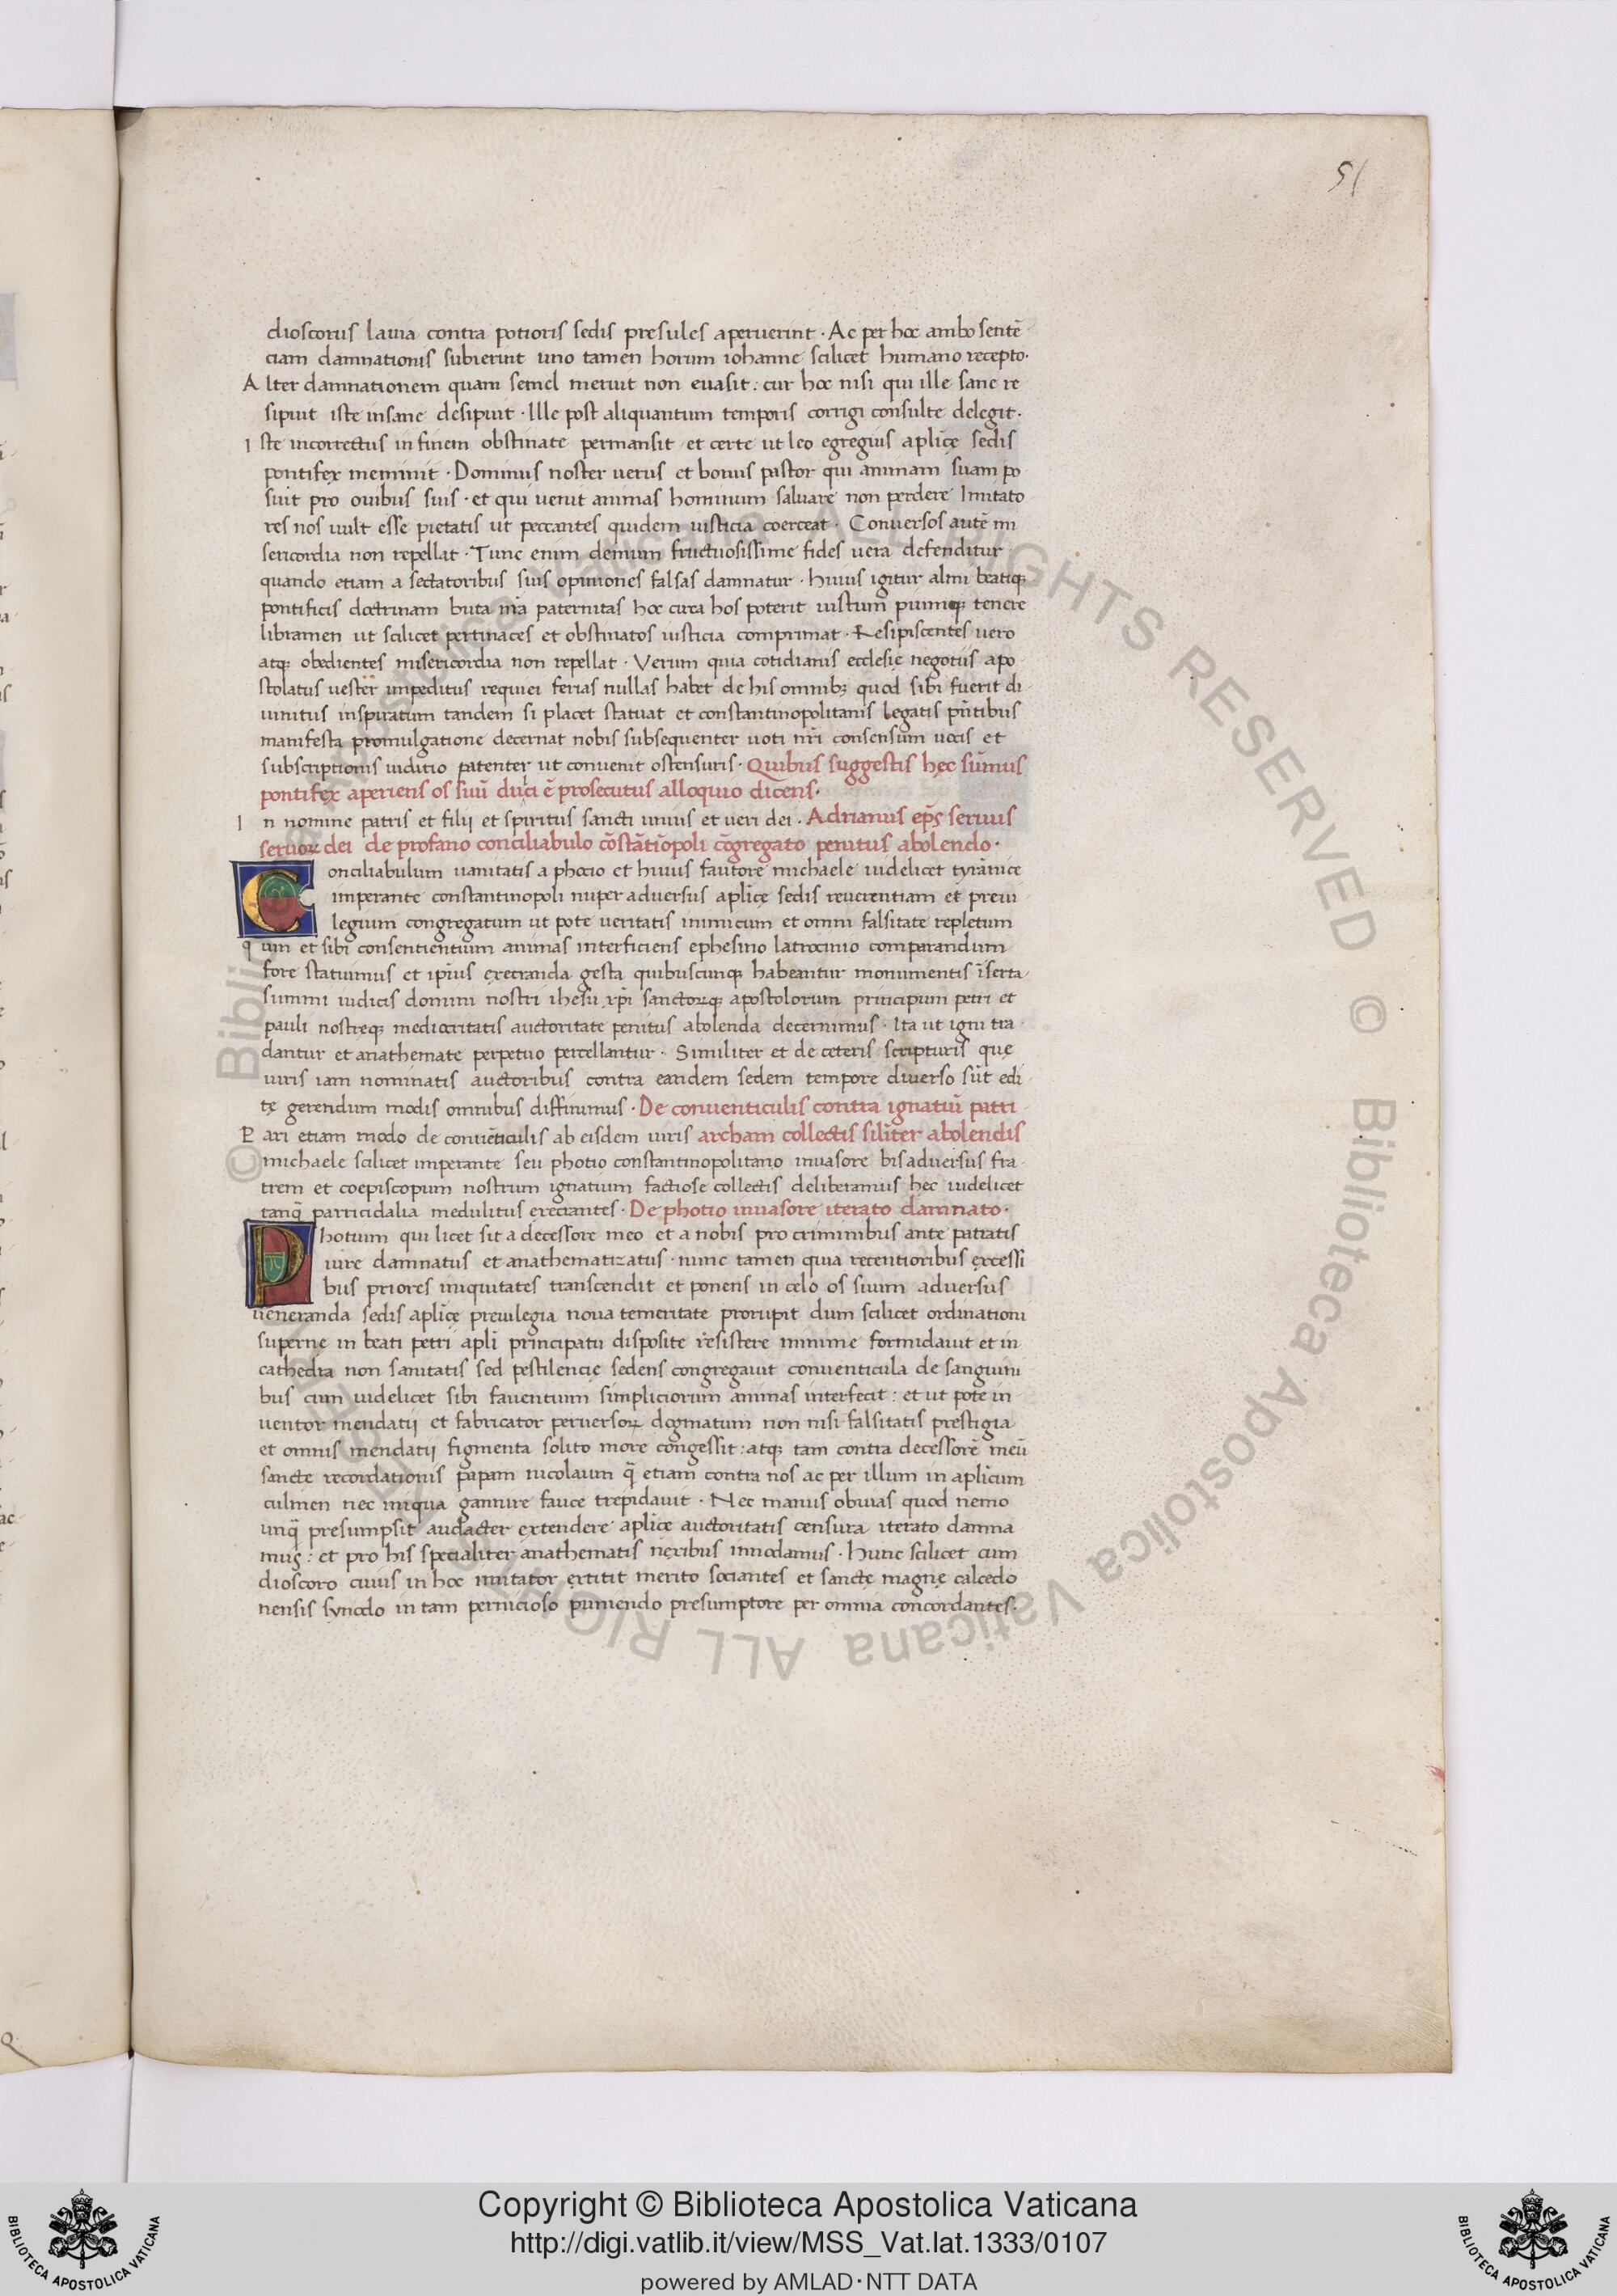 51
dioscorus lauia contra potioris sedis presules aperuerint · Ac per hoc ambo sentē
ciam damnationis subierint uno tamen horum iohanne scilicet humano recepto ·
Alter damnationem quam semel meruit non euasit : cur hoc nisi qui ille sane re
sipuit iste insane desipuit · Ille post aliquantum temporis corrigi consulte delegit ·
Iste incorrectus in finem obstinate permansit et certe ut leo egregius aplicę sedis
pontifex meminit · Dominus noster uerus et bonus pastor qui animam suam po
suit pro ouibus suis · et qui uenit animas hominum saluare non perdere Imitato
res nos uult esse pietatis ut peccantes quidem iusticia coerceat · Conuersos autē mi
sericordia non repellat · Tunc enim demum fructuosissime fides uera defenditur
quando etiam a sectatoribus suis opiniones falsas damnatur · huius igitur almi beatiq;
pontificis doctrinam buta nrā paternitas hoc circa hos poterit iustum piumq; tenere
libramen ut scilicet pertinaces et obstinatos iusticia comprimat · Resipiscentes uero
atq; obedientes misericordia non repellat · Verum quia cotidianis ecclesię negotiis apo
stolatus uester impeditus requiei ferias nullas habet de his omnib; quod sibi fuerit di
uinitus inspiratum tandem si placet statuat et constantinopolitanis legatis pn̄tibus
manifesta promulgatione decernat nobis subsequenter uoti nr̄i consensum uocis et
subscriptionis inditio patenter ut conuenit ostensuris · Quibus suggestis hec sūmus
pontifex aperiens os suū duci ē prosecutus alloquio dicens ·
In nomine patris et filij et spiritus sancti unius et ueri dei · Adrianus ep̄s seruus
seruoꝝ dei de profano conciliabulo cōstātiōpoli cōgregato penitus abolendo ·
Conciliabulum uanitatis a phocio et huius fautore michaele uidelicet tyrānice
imperante constantinopoli nuper aduersus aplicę sedis reuerentiam et preui
legium congregatum ut pote ueritatis inimicum et omni falsitate repletum
qum et sibi consentientium animas interficiens ephesino latrocinio comparandum
fore statuimus et ip̄ius execranda gesta quibuscunq; habeantur monumentis īserta
summi iudicis domini nostri ihesu xp̄i sanctoꝝq; apostolorum principum petri et
pauli nostreq; mediocritatis auctoritate penitus abolenda decernimus · Ita ut igni tra
dantur et anathemate perpetuo percellantur · Similiter et de ceteris scripturis que
iuris iam nominatis auctoribus contra eandem sedem tempore diuerso sūt edi
tę gerendum modis omnibus diffinimus · De conuenticulis contra ignatiū patri
Pari etiam modo de conuēticulis ab eisdem iuris archam collectis silīter abolendis
michaele scilicet imperante seu photio constantinopolitano inuasore bis aduersus fra
trem et coepiscopum nostrum ignatium factiose collectis deliberamus hec uidelicet
tanq̄ parricidalia medulitus execrantes · De photio inuasore iterato damnato ·
Photium qui licet sit a decessore meo et a nobis pro criminibus ante patratis
iure damnatus et anathematizatus · nunc tamen quia recentioribus excessi
bus priores iniquitates transcendit et ponens in celo os suum aduersus
ueneranda sedis aplicę preuilegia noua temeritate prorupit dum scilicet ordinationi
superne in beati petri apli principatu disposite resistere minime formidauit et in
cathedra non sanitatis sed pestilencię sedens congregauit conuenticula de sanguini
bus cum uidelicet sibi fauentium simpliciorum animas interfecit : et ut pote in
uentor mendatij et fabricator peruersoꝝ dogmatum non nisi falsitatis prestigia
et omnis mendatij figmenta solito more congessit : atq; tam contra decessorē meū
sancte recordationis papam nicolaum q̄ etiam contra nos ac per illum in aplicum
culmen nec iniqua gannire fauce trepidauit · Nec manus obuias quod nemo
unq̄ presumpsit audacter extendere aplice auctoritatis censura iterato damna
mus : et pro his specialiter anathematis nexibus innodamus · hunc scilicet cum
dioscoro cuius in hoc imitator extitit merito sociantes et sancte magnę calcedo
nensis synodo in tam pernicioso puniendo presumptore per omnia concordantes ·
© Biblioteca Apostolica Vaticana ALL RIGHTS RESERVED
Copyright © Biblioteca Apostolica Vaticana
http://digi.vatlib.it/view/MSS_Vat.lat.1333/0107
powered by AMLAD·NTT DATA
BIBLIOTECA APOSTOLICA VATICANA
BIBLIOTECA APOSTOLICA VATICANA